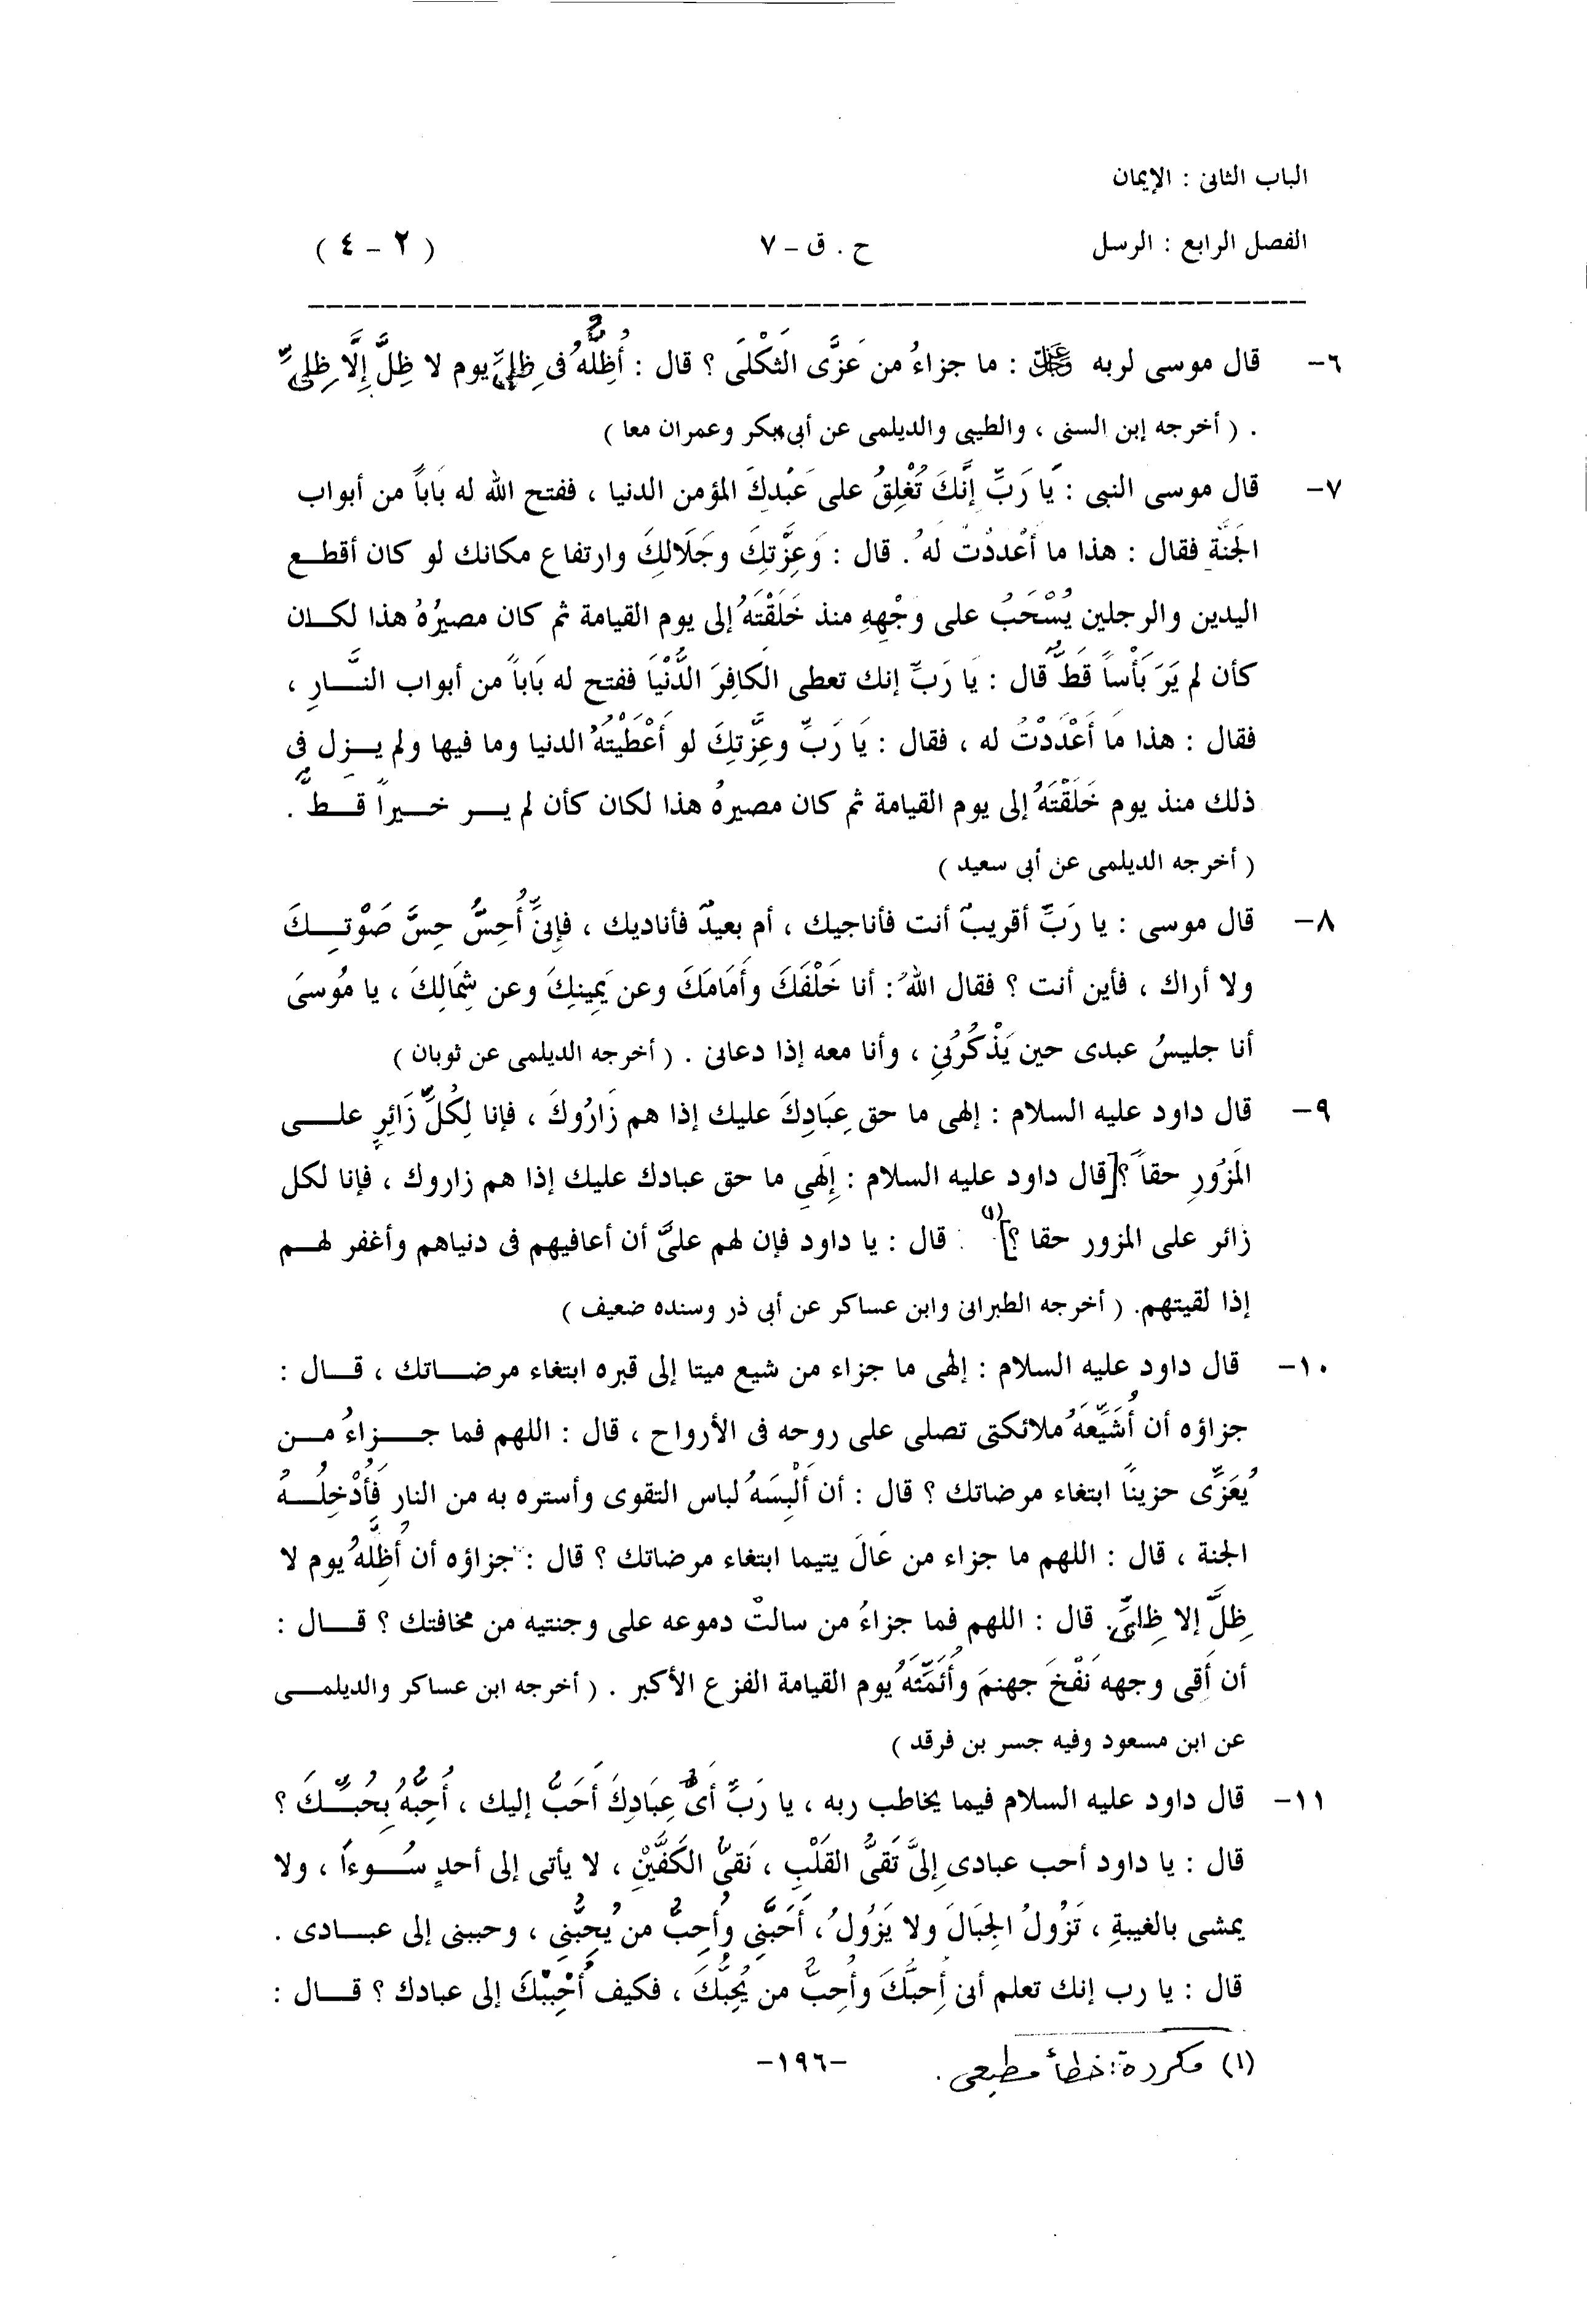 الباب الثانى : الإيمان
الفصل الرابع : الرسل ح . ق - ٧ ( ٢ - ٤ )
٦- قال موسى لربه ﷿ : ما جزاءُ من عَزَّى الثكْلَى ؟ قال : أُظِلُّهُ فى ظِلِّى يوم لا ظِلَّ إِلَّا ظِلِّى
. ( أخرجه إبن السنى ، والطيبى والديلمى عن أبى بكر وعمران معا )
٧- قال موسى النبى : يَا رَبِّ إِنَّكَ تُغْلِقُ على عَبْدِكَ المؤمن الدنيا ، ففتح الله له بَاباً من أبواب
الجَنَّةِ فقال : هذا ما أَعْددْتُ لهُ . قال : وَعِزَّتِكَ وجَلَالِكَ وارتفاع مكانك لو كان أقطع
اليدين والرجلين يُسْحَبُ على وجْهِهِ منذ خَلَقْتَهُ إلى يوم القيامة ثم كان مصيرُهُ هذا لكان
كأن لم يَرَ بَأْساً قَطُّ قال : يا رَبِّ إنك تعطى الكافِرَ الدُّنْيَا ففتح له بَاباً من أبواب النَّارِ ،
فقال : هذا مَا أَعْدَدْتُ له ، فقال : يَا رَبِّ وعِزَّتِكَ لو أَعْطَيْتَهُ الدنيا وما فيها ولم يزل فى
ذلك منذ يوم خَلَقْتَهُ إلى يوم القيامة ثم كان مصيرهُ هذا لكان كأن لم ير خيراً قطُّ .
( أخرجه الديلمى عن أبى سعيد )
٨- قال موسى : يا رَبِّ أقريبٌ أنت فأناجيك ، أم بعيدٌ فأناديك ، فإنِّى أُحِسُّ حِسَّ صَوْتِكَ
ولا أراك ، فأين أنت ؟ فقال اللهُ : أنا خَلْفَكَ وأَمَامَكَ وعن يَمِينِكَ وعن شِمَالِكَ ، يا مُوسَى
أنا جليسُ عبدى حين يَذْكُرُنِى ، وأنا معه إذا دعانى . ( أخرجه الديلمى عن ثوبان )
٩- قال داود عليه السلام : إلهى ما حق عِبَادِكَ عليك إذا هم زَارُوكَ ، فإنا لِكُلِّ زَائِرٍ على
المَزُورِ حقاً ؟ [قال داود عليه السلام : إِلَهِى ما حق عبادك عليك إذا هم زاروك ، فإنا لكل
زائر على المزور حقا ؟](١) . قال : يا داود فإن لهم علىَّ أن أعافيهم فى دنياهم وأغفر لهم
إذا لقيتهم. ( أخرجه الطبرانى وابن عساكر عن أبى ذر وسنده ضعيف )
١٠- قال داود عليه السلام : إلهى ما جزاء من شيع ميتا إلى قبره ابتغاء مرضاتك ، قال :
جزاؤه أن أُشَيِّعَهُ ملائكتى تصلى على روحه فى الأرواح ، قال : اللهم فما جزاءُ من
يُعَزِّى حزينًا ابتغاء مرضاتك ؟ قال : أن أُلْبِسَهُ لباس التقوى وأستره به من النار فَأُدْخِلُهُ
الجنة ، قال : اللهم ما جزاء من عَالَ يتيما ابتغاء مرضاتك ؟ قال : جزاؤه أن أُظِلَّهُ يوم لا
ظِلَّ إلا ظِلِّى. قال : اللهم فما جزاءُ من سالتْ دموعه على وجنتيه من مخافتك ؟ قال :
أن أَقِى وجهه نَفْخَ جهنمَ وأُئَمِّنَهُ يوم القيامة الفزع الأكبر . ( أخرجه ابن عساكر والديلمى
عن ابن مسعود وفيه جسر بن فرقد )
١١- قال داود عليه السلام فيما يخاطب ربه ، يا رَبِّ أىُّ عِبَادِكَ أَحَبُّ إليك ، أُحِبُّهُ بِحُبِّكَ ؟
قال : يا داود أحب عبادى إِلىَّ تَقىُّ القَلْبِ ، نَقىُّ الكَفَّيْنِ ، لا يأتى إلى أحدٍ سُوءاً ، ولا
يمشى بالغيبةِ ، تَزُولُ الجِبَالَ ولا يَزُولُ ، أَحَبَّنِى وأُحِبُّ من يُحِبُّنِى ، وحببنى إلى عبادى .
قال : يا رب إنك تعلم أنى أُحِبُّكَ وأُحِبُّ من يُحِبُّكَ ، فكيف أُحْبِبْكَ إلى عبادك ؟ قال :
(١) مكررة : خطأ مطبعى .
-١٩٦-